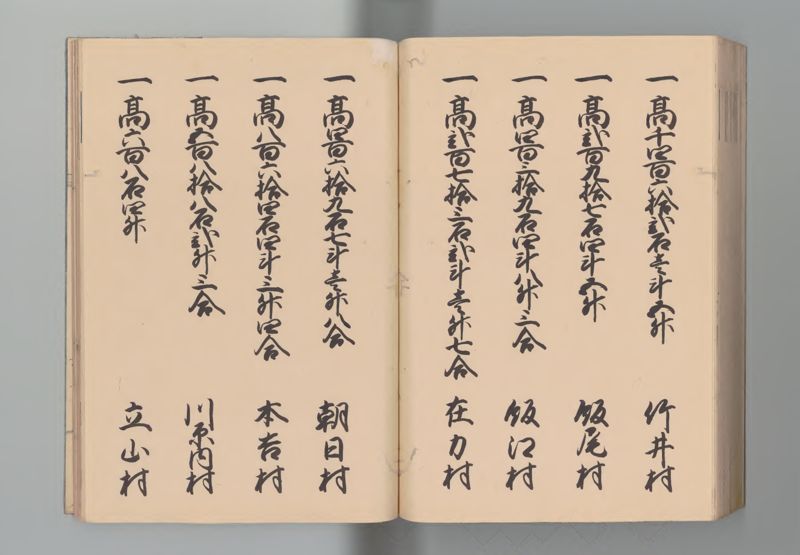 一高千四百六拾弐石壱斗五升 竹井村
一高弐百九拾七石四斗五升 飯尾村
一高四百三拾九石四斗八升三合 飯江村
一高弐百七拾三石弐斗壱升七合 在力村
一高四百六拾九石七斗壱升八合 朝日村
一高八百六拾四石四斗三升四合 本吉村
一高五百八拾八石弐升三合 川原内村
一高六百八石四升 立山村